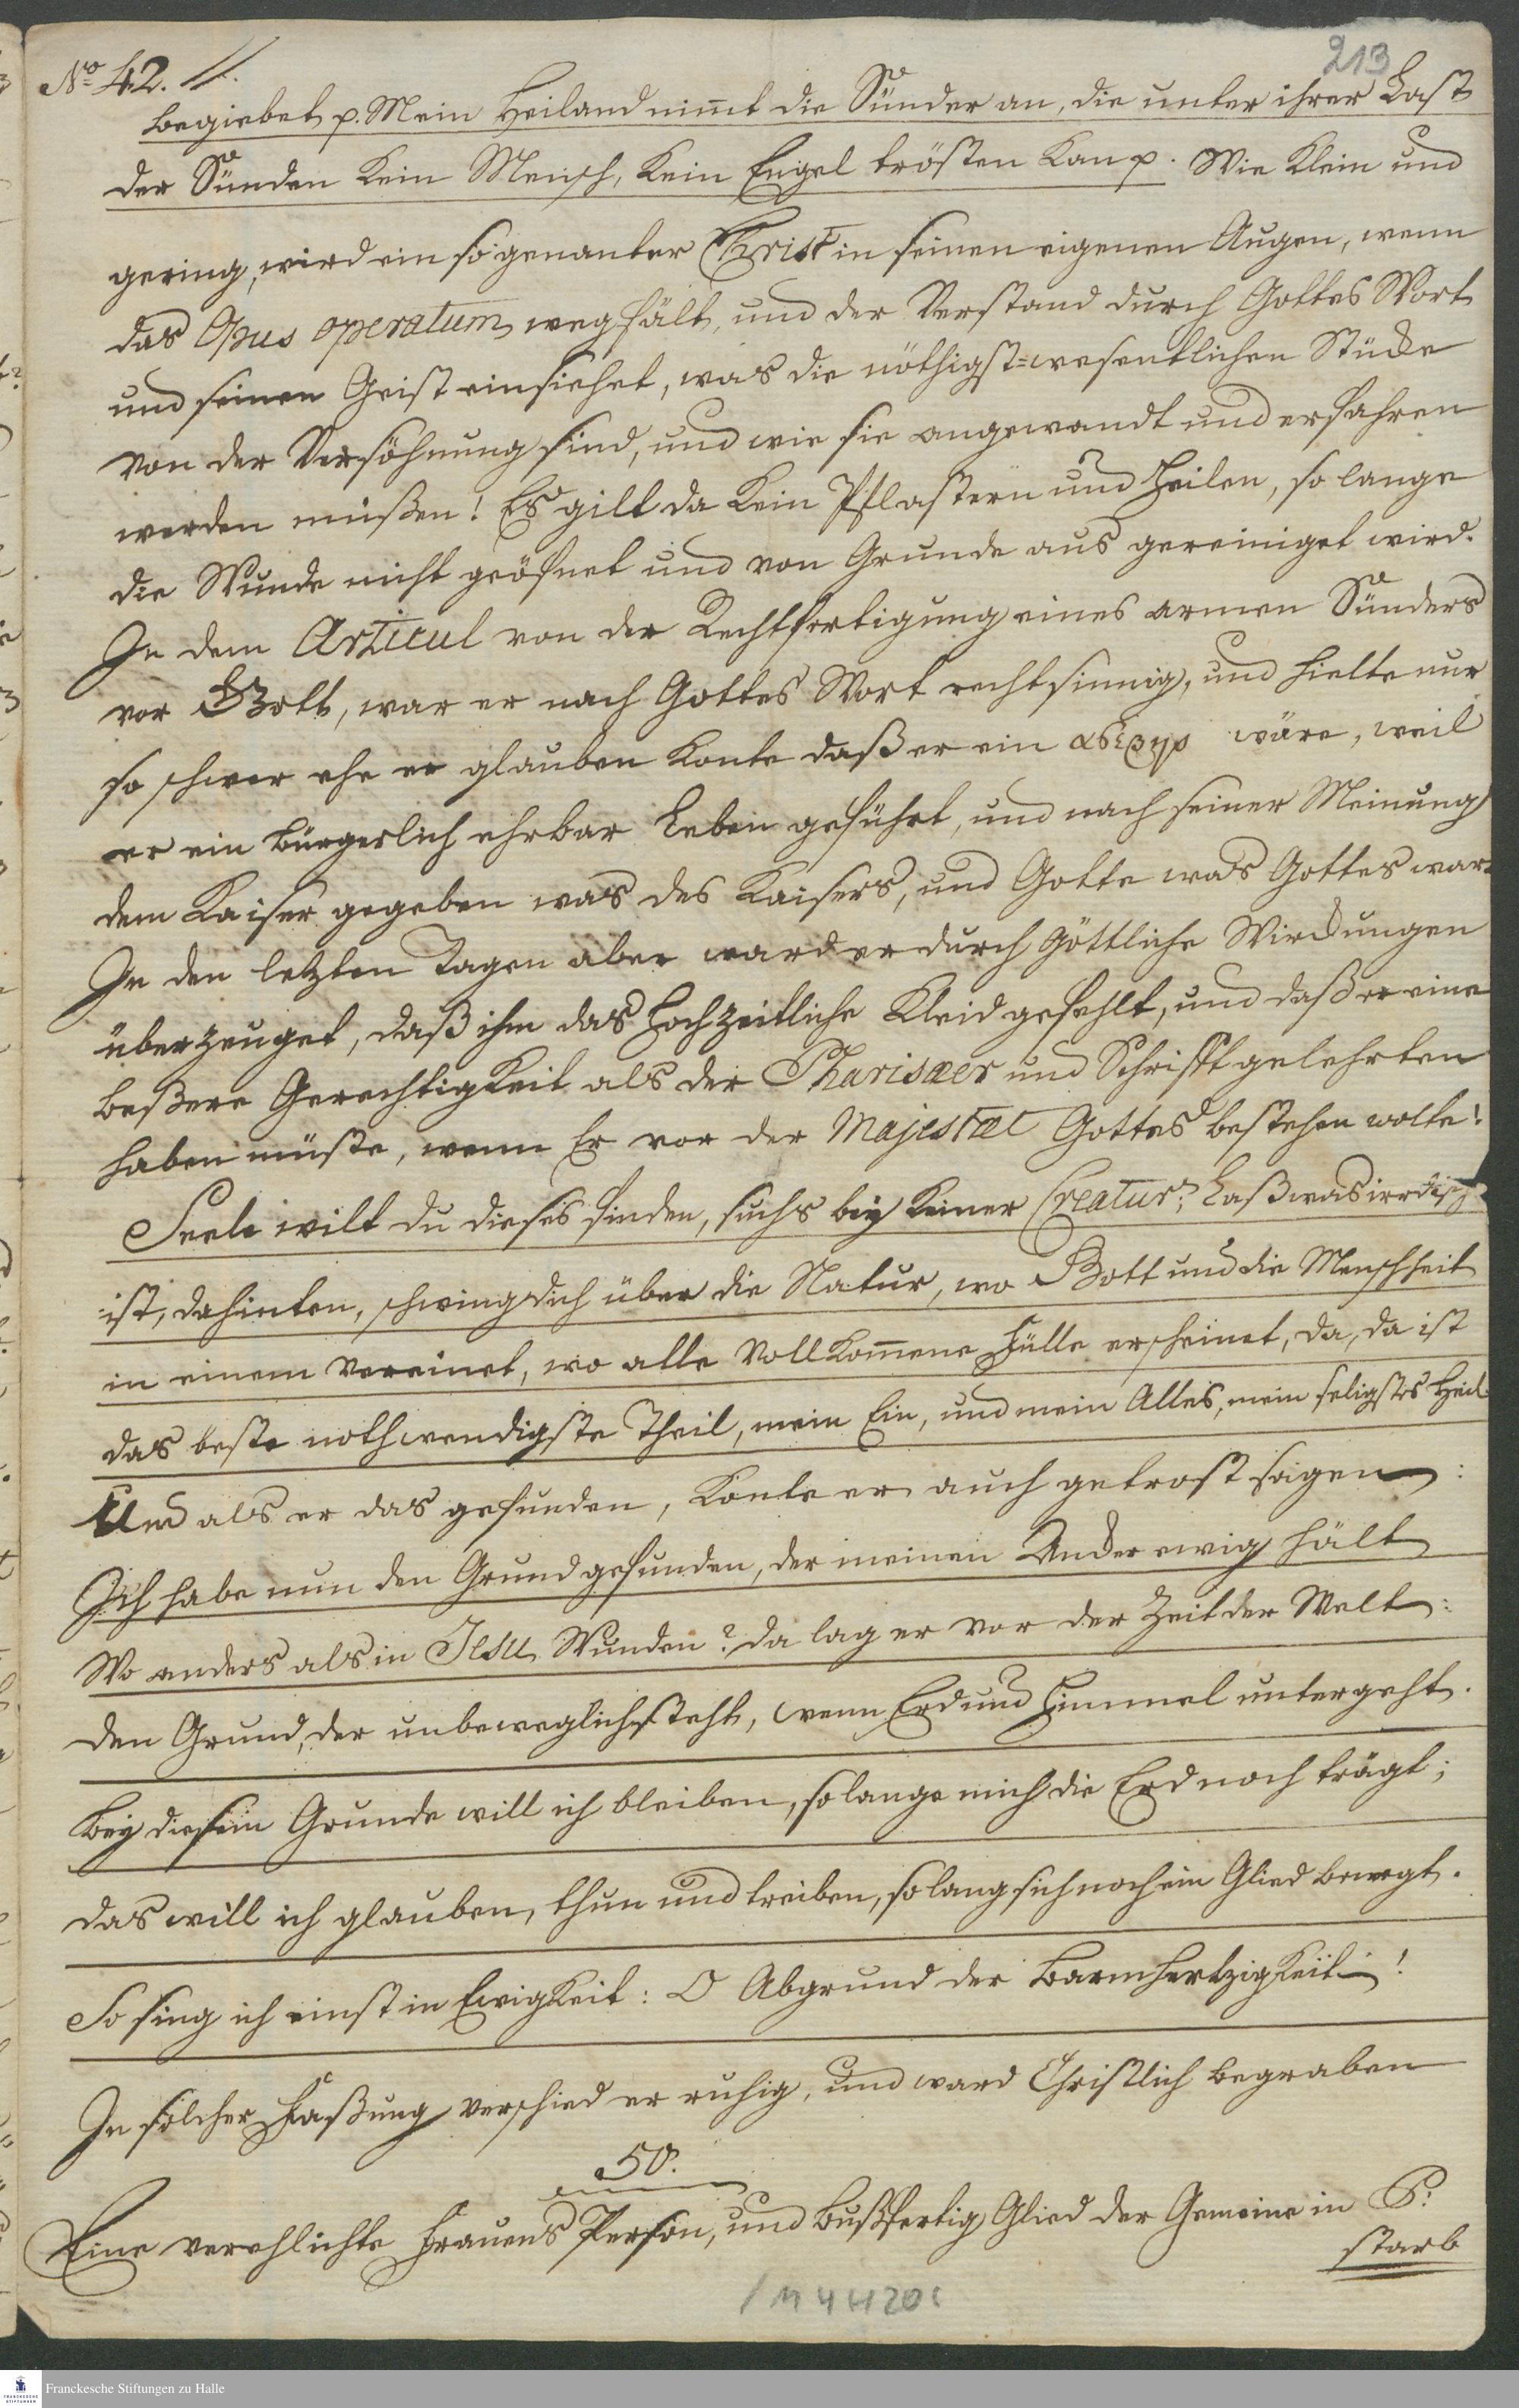 213
No 42.
begiebet p. Mein Heiland nim̅t die Sünder an, die unter ihrer Last
der Sünden kein Mensch, kein Engel trösten kan p. Wie klein und
gering, wird ein so genanter Christ in seinen eigenen Augen, wenn
das Opus operatum wegfält, und der Verstand durch Gottes Wort
und seinen Geist einsiehet, was die nöthigst=wesentlichen Stücke
von der Versöhnung sind, und wie sie angewandt und erfahren
werden müßen! Es gilt da kein Pflastern und Heilen, so lange
die Wunde nicht geöfnet und von Grunde aus gereiniget wird.
In dem Articul von der Rechtfertigung eines armen Sünders
vor Gott, war er nach Gottes Wort rechtsinnig, und hielte nur
so schwer ehe er glauben konte daß er ein wäre, weil
er ein bürgerlich ehrbar Leben geführt, und nach seiner Meinung
dem Kaiser gegeben was des Kaisers, und Gotte was Gottes war.
In den letzten Tagen aber ward er durch Göttliche Wirckungen
überzeuget, daß ihm das Hochzeitliche Kleid gefehlt, und daß er eine
beßere Gerechtigkeit als der Pharisæer und Schrifftgelehrten
haben müste, wenn Er vor der Majestæt Gottes bestehen wolte!
Seele wilt du dieses finden, suchs bey keiner Creatur, Laß was irrdisch
ist, dahinten, schwing dich über die Natur, wo Gott und die Menschheit
in einem vereinet, wo alle vollkom̅ene Fülle erscheinet, da, da ist
das beste nothwendigste Theil, mein Ein, und mein Alles, mein seligstes Heil
Und als er das gefunden, konte er auch getrost sagen:
Ich habe nun den Grund gefunden, der meinen Ancker ewig hält
Wo anders als in Jesu Wunden? da lag er vor der Zeit der Welt:
den Grund, der unbeweglich steht, wenn Erd und Himmel untergeht.
Bey diesem Grunde will ich bleiben, solange mich die Erd noch trägt;
das will ich glauben, thun und treiben, solang sich noch ein Glied bewegt.
So sing ich einst in Ewigkeit: O Abgrund der Barmhertzigkeit!
In solcher Faßung verschied er ruhig, und ward Christlich begraben
50.
Eine verehlichte Frauens Person, und bußfertig Glied der Gemeine in
starb
Franckesche Stiftungen zu Halle